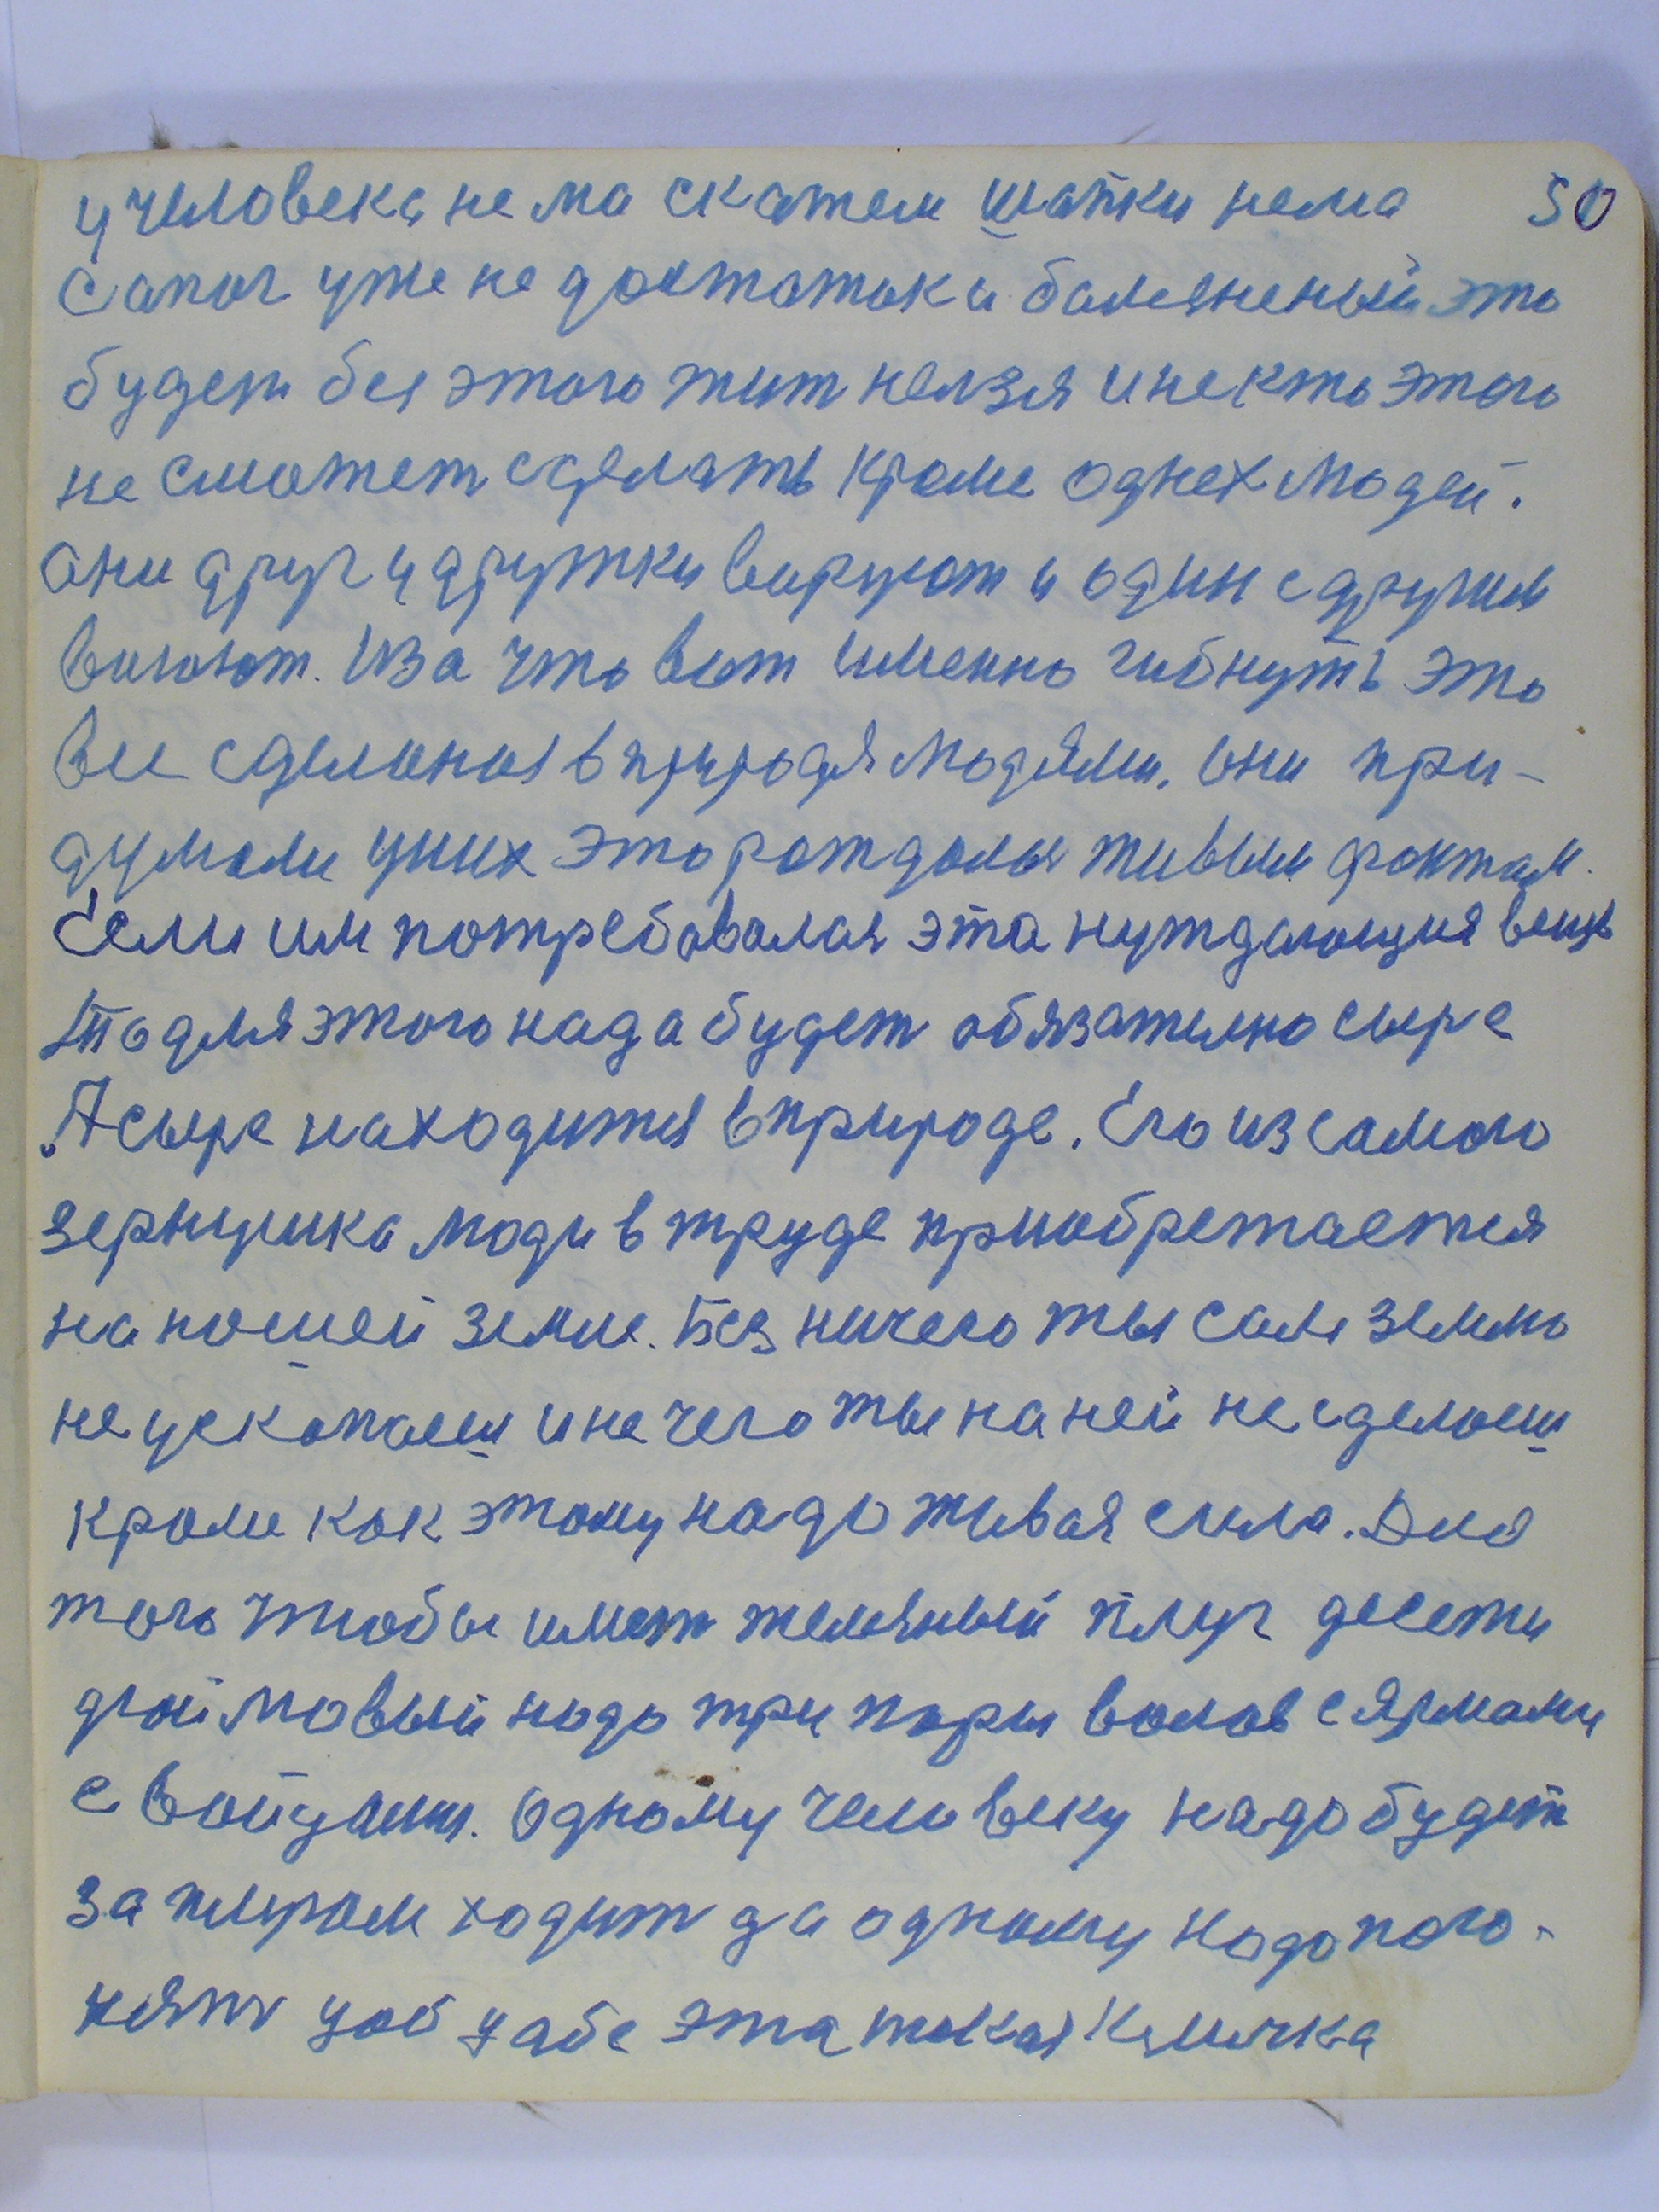 у человека нема скажем шапки нема 50
сапог уже не достаток и болезненый это
будет без этого жит нелзя и некто этого
не сможет сделать кроме однех людей.
Они друг у дружки воруют и один с другим
воюют. Иза что вот именно гибнуть это
все сделоноя в природя людями. Они при-
думали уних это рождалыя живым фактам.
Если им потребовалая эта нуждающия вещь
То для этого нада будет обязателно сыре
А сыре находится в природе. Его из самого
зернушка люди в труде приобретается
на нашей земле. Без ничего ты сам землю
не ускопаеш и не чего ты на ней не сделаеш
кроме как этому надо живая сила. Для
того чтобы имет желзный плуг десети
дюймовый надо три пары волов с ярмами
с войями. Одному человеку надо будет
за плугом ходит да одному надо пого-
нять цоб цабе эта такая кличка